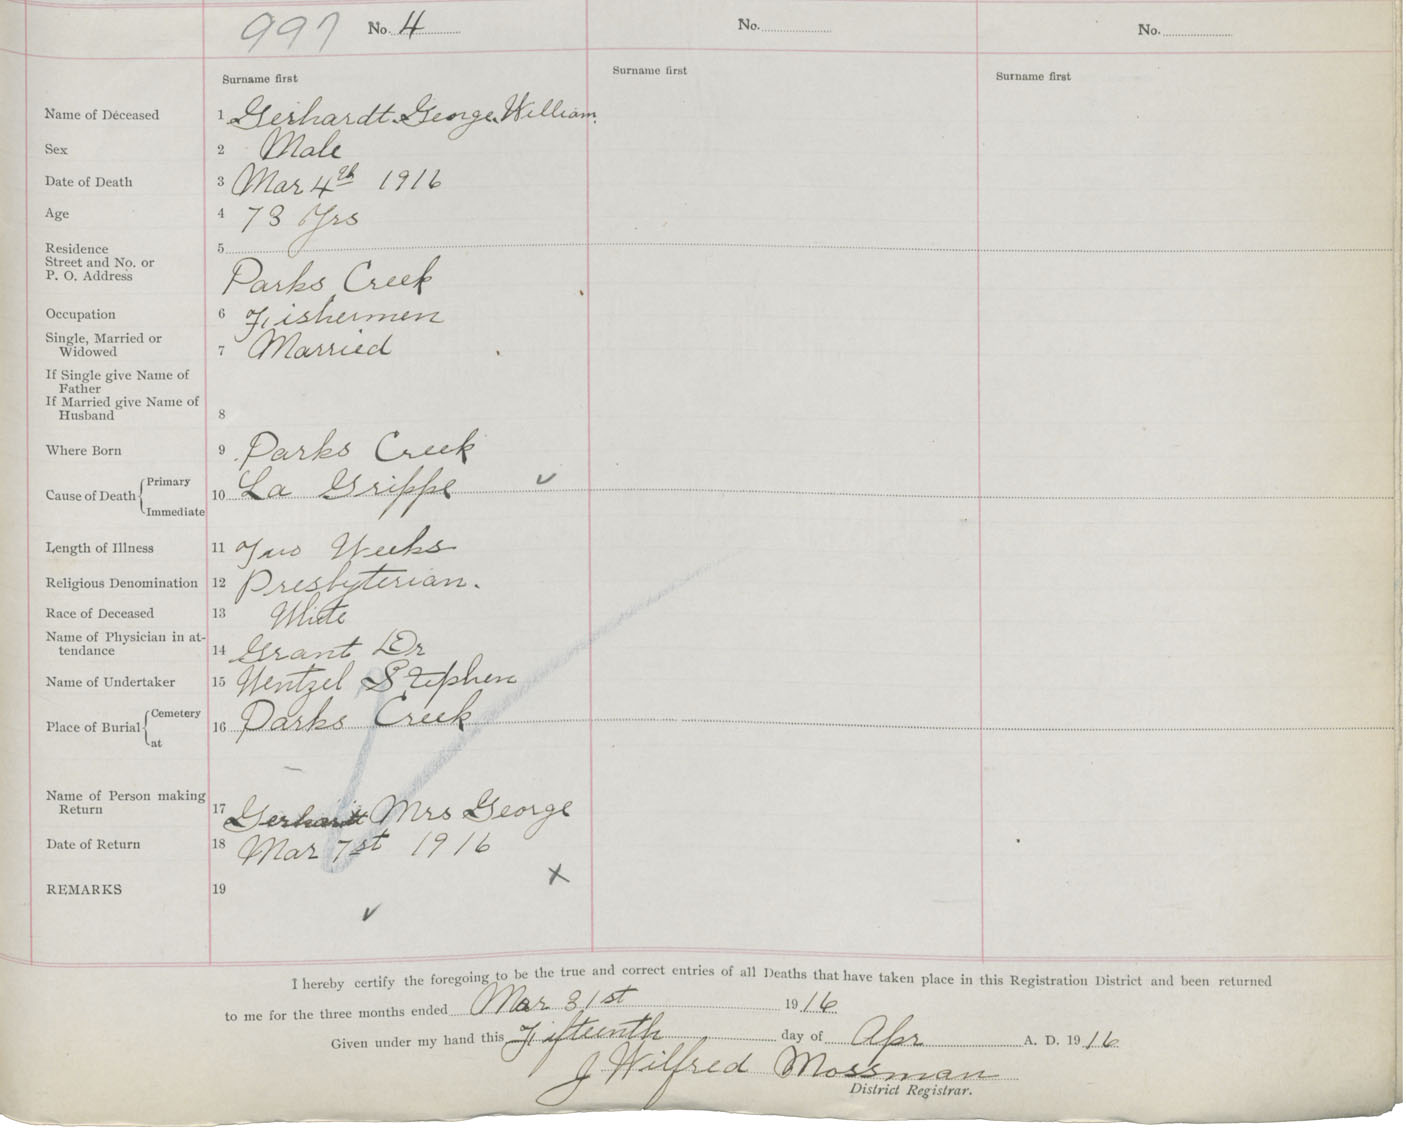 997 No. 4 No. No.
Surname first Surname first Surname first
Name of Deceased 1 Gerhardt George William
Sex 2 Male
Date of Death 3 Mar 4th 1916
Age 4 73 Yrs
Residence 5
Street and No. or
P. O. Address Parks Creek
Occupation 6 Fishermen
Single, Married or
Widowed 7 Married
If Single give Name of
Father
If Married give Name of
Husband 8
Where Born 9 Parks Creek
Cause of Death { Primary 10 La Grippe
Immediate
Length of Illness 11 Two Weeks
Religious Denomination 12 Presbyterian.
Race of Deceased 13 White
Name of Physician in at-
tendance 14 Grant Dr
Name of Undertaker 15 Wentzel Stephen
Place of Burial { Cemetery 16 Parks Creek
at
Name of Person making
Return 17 Gerhardt Mrs George
Date of Return 18 Mar 7st 1916
REMARKS 19
I hereby certify the foregoing to be the true and correct entries of all Deaths that have taken place in this Registration District and been returned
to me for the three months ended Mar 31st 1916
Given under my hand this Fifteenth day of Apr A. D. 1916
J Wilfred Mossman
District Registrar.